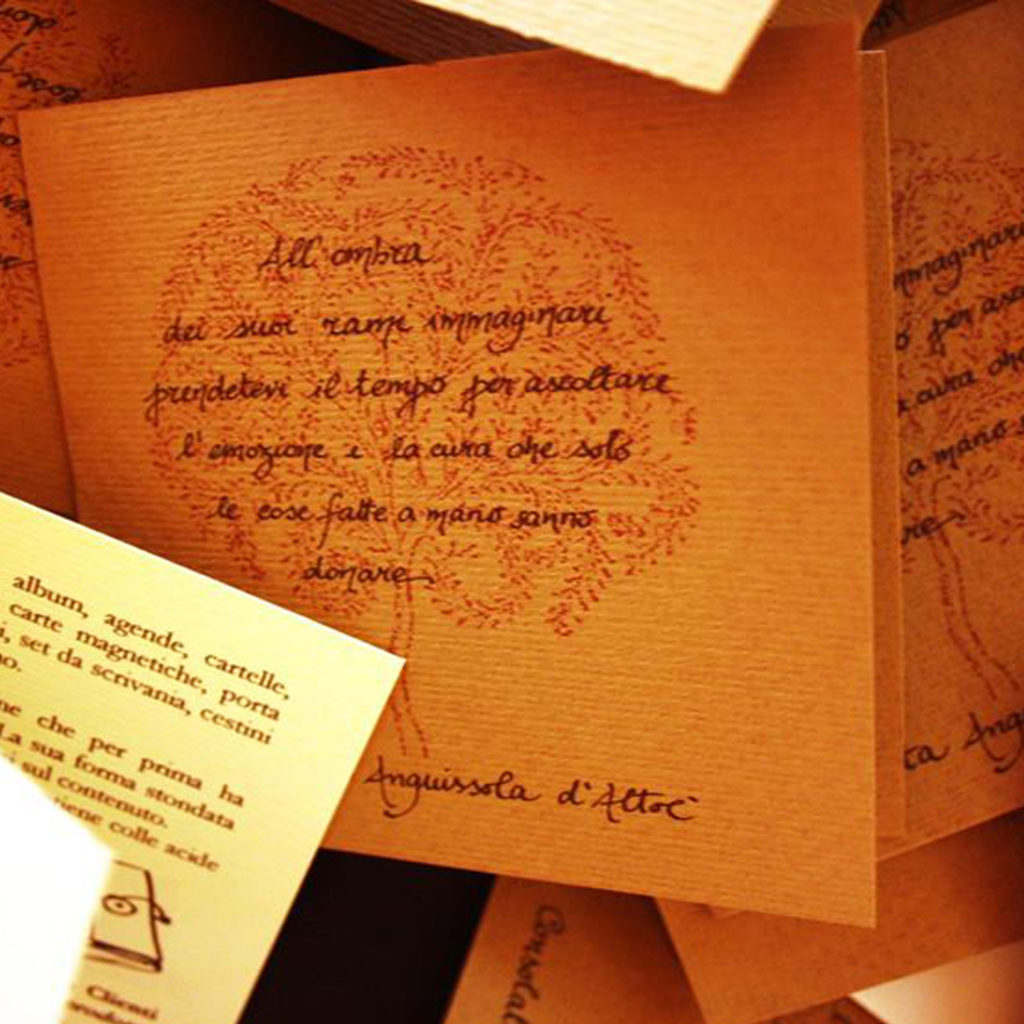 All'ombra
dei suoi rami immaginari
prendetevi il tempo per ascoltare
l'emozione e la cura che solo
le cose fatte a mano sanno
donare
Anguissola d'Altoè
album, agende, cartelle,
carte magnetiche, porta
set da scrivania, cestini
che per prima ha
La sua forma stondata
sul contenuto.
tiene colle acide
Clienti
immaginari
per
cura che
a mano